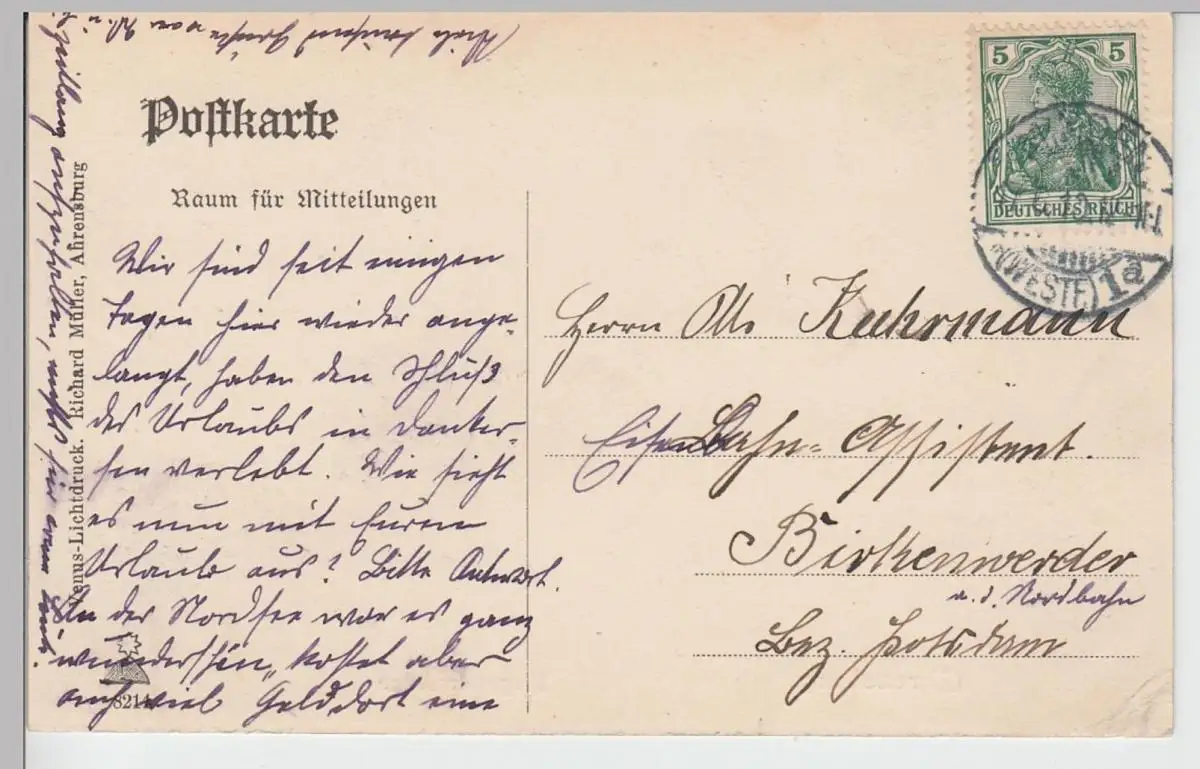 Postkarte
Raum für Mitteilungen
Wir sind seit einigen
Tagen hier wieder ange-
langt, haben den Schluß
des Urlaubs in Danker-
sen verlebt. Wie sieht
es nun mit Eurem
Urlaub aus? Bitte Antwort.
An der Nordsee war es ganz
wunderschön, kostet aber
auch viel Geld, dort eine
Zeitlang aufhalten,
Viele tausend Grüße von
Venus-Lichtdruck. Richard Müller, Ahrensburg
8214
5 5
DEUTSCHES REICH
(WESTF.) 1a
Herrn Otto Kuhrmann
Eisenbahn-Assistent.
Birkenwerder
a. d. Nordbahn
Bez. Potsdam